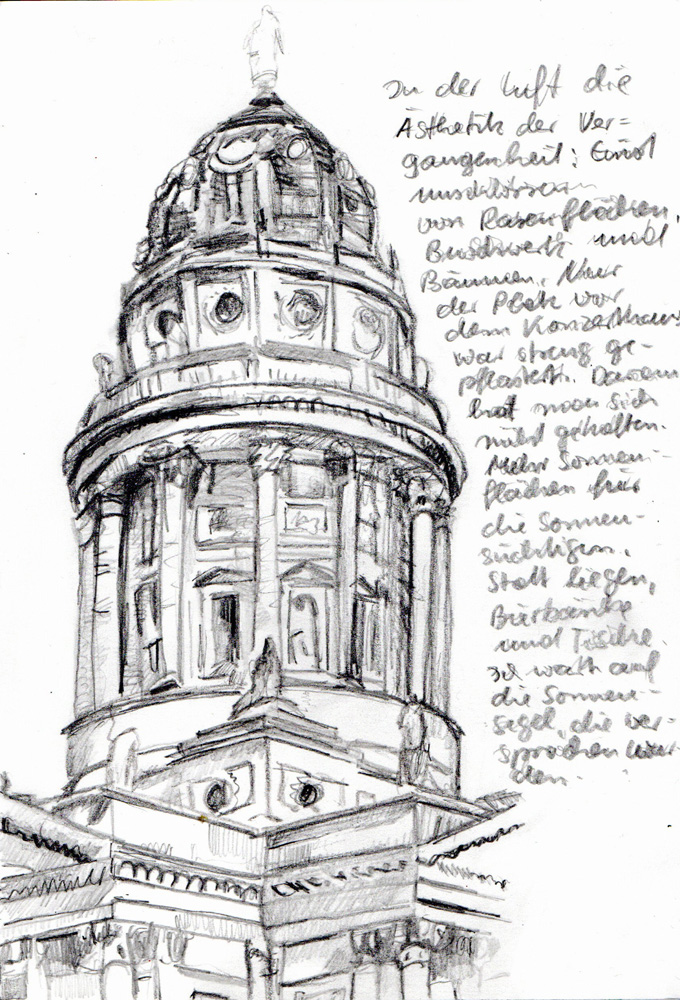 In der Luft die
Ästhetik der Ver=
gangenheit: Einst
von Rasenflächen,
Buschwerk und
Bäumen. Nur
der Platz vor
dem Konzerthaus
war streng ge-
pflastert. Daran
hat man sich
nicht gehalten.
Mehr Sonnen-
flächen für
die Sonnen-
süchtigen.
Statt Liegen,
Bierbänke
und Tische.
Ich warte auf
die Sonnen-
segel, die ver-
sprochen wur-
den.